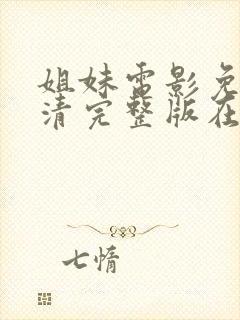 姐妹电影免
清完整版在
七情